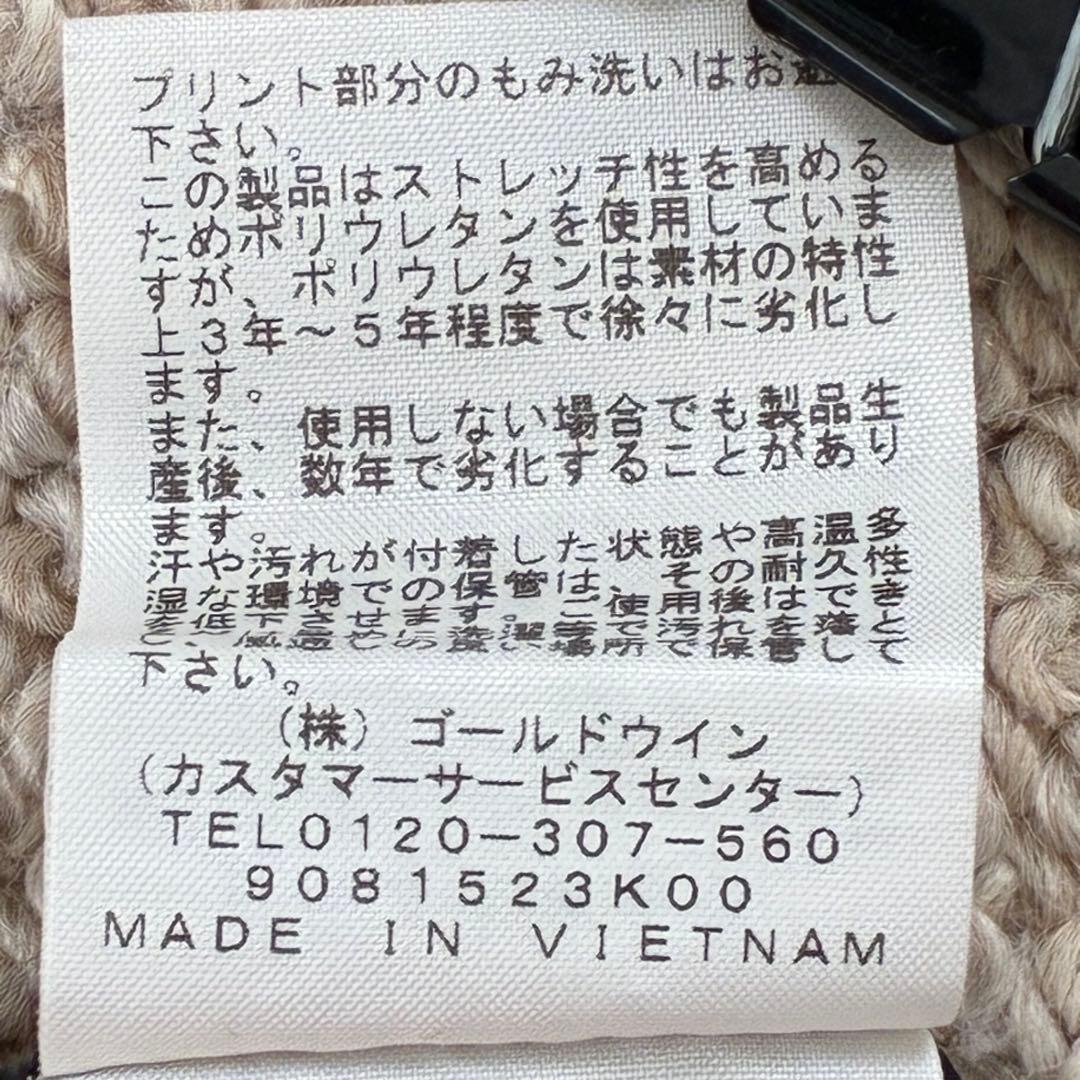 プリント部分のもみ洗いはお
下さい。
この製品はストレッチ性を高める
ためポリウレタンを使用していま
すが、ポリウレタンは素材の特性
上3年～5年程度で徐々に劣化し
ます。
また、使用しない場合でも製品生
産後、数年で劣化することがあり
ます。
汗や汚れが付着した状態や高温多
湿な環境での保管は、その耐久性
を低下させます。ご使用後は
下さい。
(株)ゴールドウイン
(カスタマーサービスセンター)
TEL0120-307-560
9081523K00
MADE IN VIETNAM